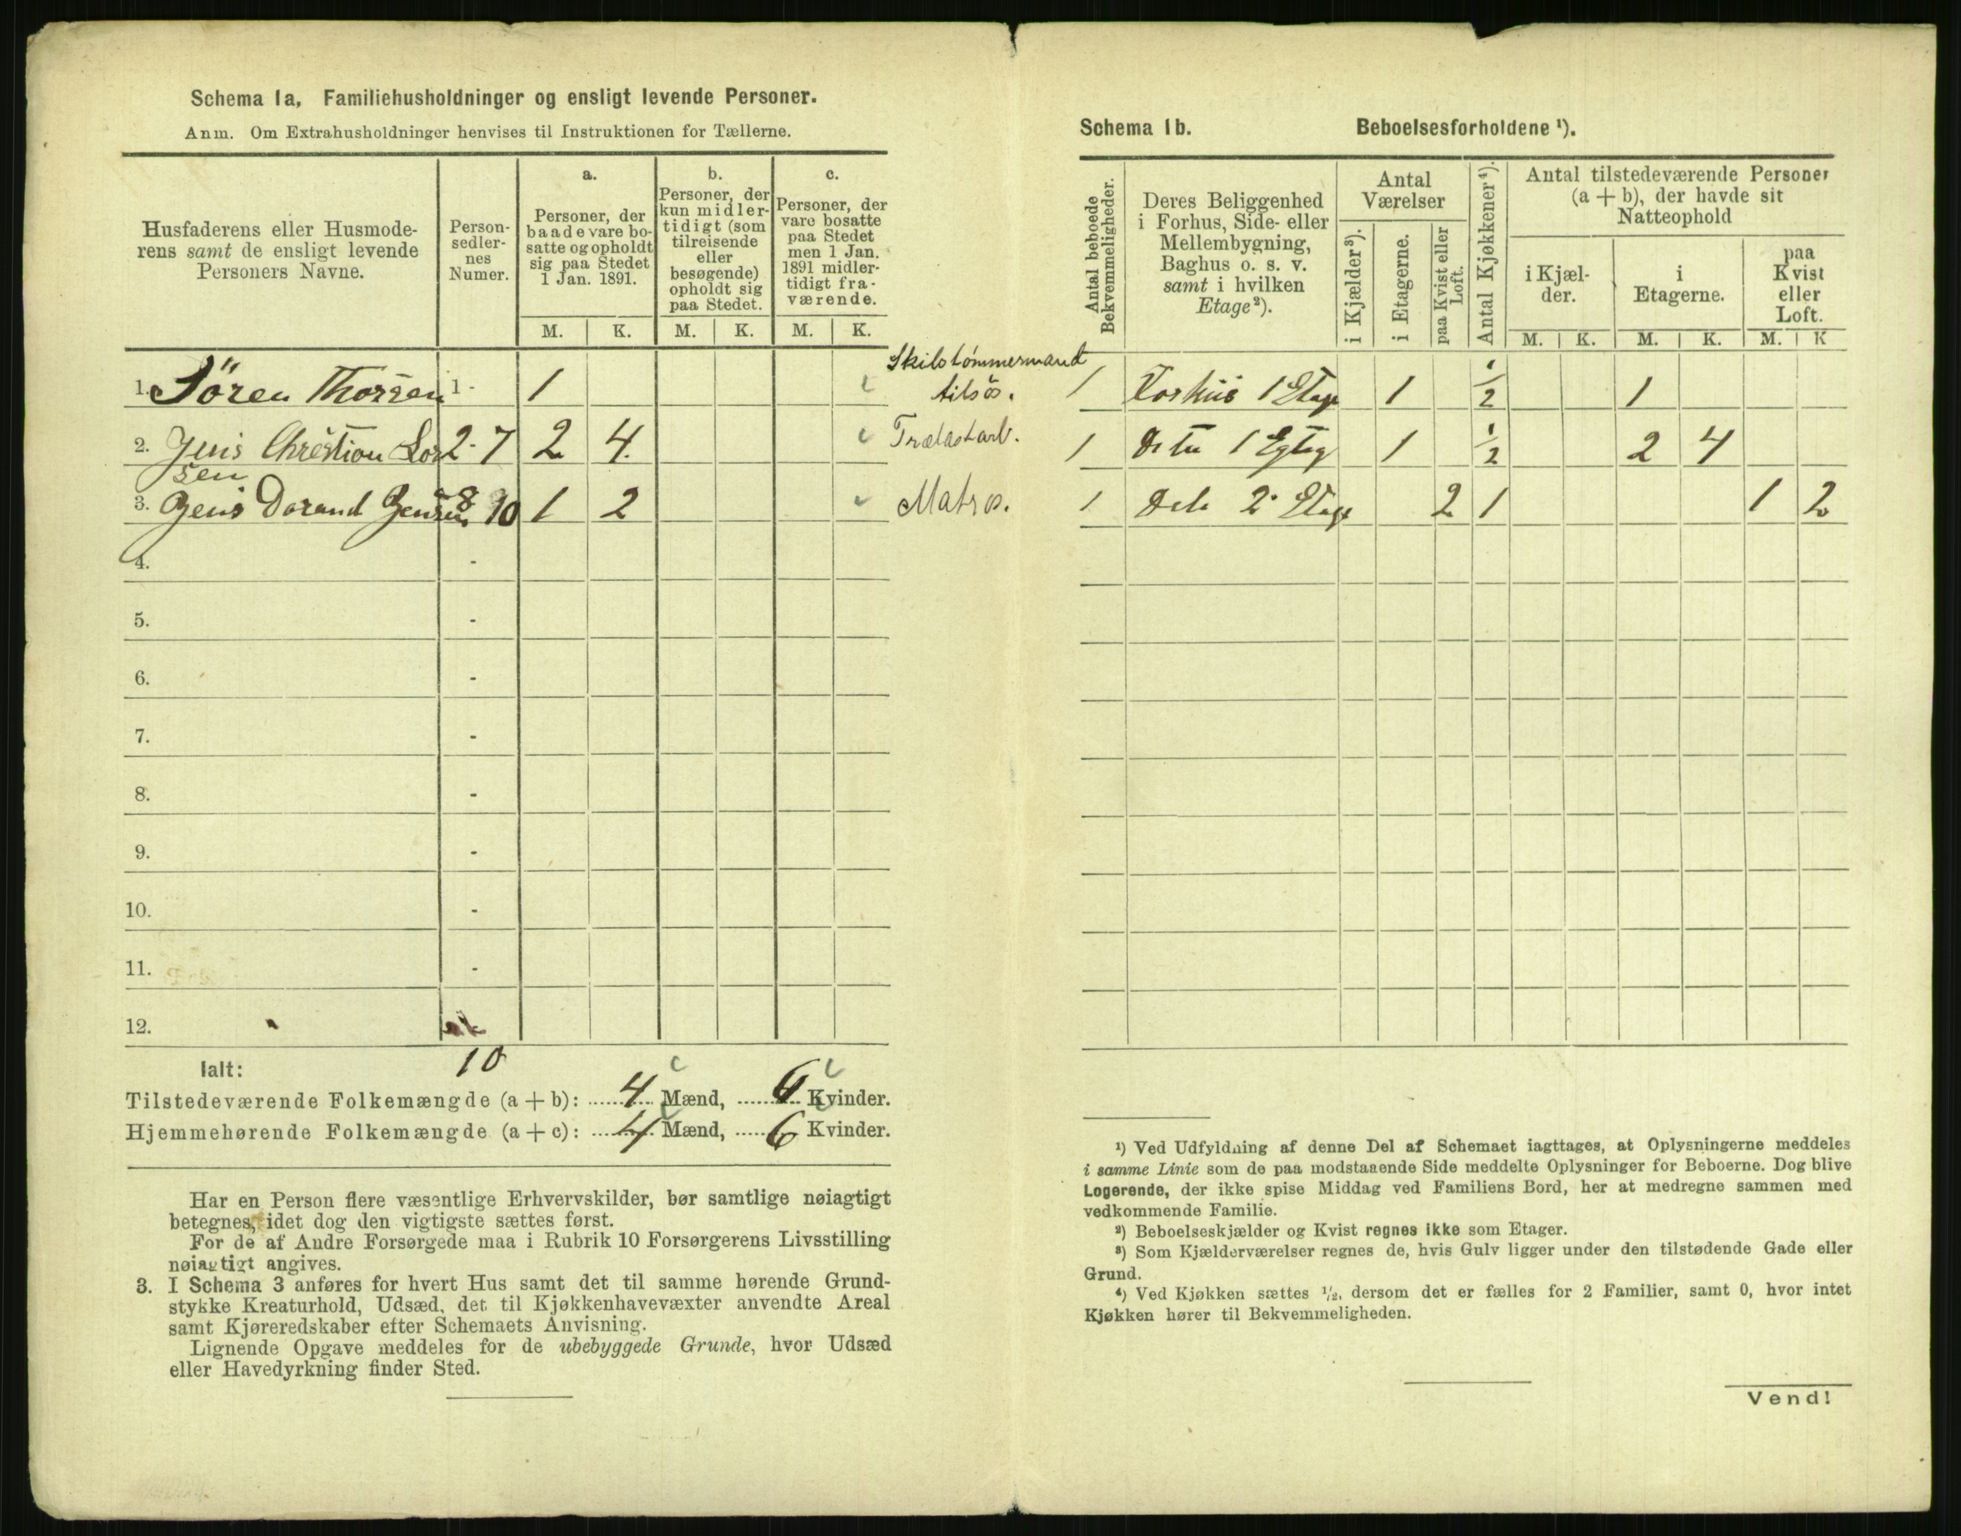 Schema 1a, Familiehusholdninger og ensligt levende Personer.
Anm. Om Extrahusholdninger henvises til Instruktionen for Tællerne.
Husfaderens eller Husmoderens samt de ensligt levende Personers Navne.
Person-sedlernes Numer.
a. Personer, der baade vare bosatte og opholdt sig paa Stedet 1 Jan. 1891.
b. Personer, der kun midlertidigt (som tilreisende eller besøgende) opholdt sig paa Stedet.
c. Personer, der vare bosatte paa Stedet men 1 Jan. 1891 midlertidigt fraværende.
M. K. M. K. M. K.
1. Sören Thorsen 1 - 1 Skibstømmermand
tilsös.
2. Jens Christian Lar 2 - 7 2 4 Trælastarb.
sen
3. Jens Dorand Jensen 8 10 1 2 Matros.
4. -
5. -
6. -
7. -
8. -
9. -
10. -
11. -
12.
Ialt: 10
Tilstedeværende Folkemængde (a + b): 4 Mænd, 6 Kvinder.
Hjemmehørende Folkemængde (a + c): 4 Mænd, 6 Kvinder.
Har en Person flere væsentlige Erhvervskilder, bør samtlige nøiagtigt
betegnes, idet dog den vigtigste sættes først.
For de af Andre Forsørgede maa i Rubrik 10 Forsørgerens Livsstilling
nøiagtigt angives.
3. I Schema 3 anføres for hvert Hus samt det til samme hørende Grund-
stykke Kreaturhold, Udsæd, det til Kjøkkenhavevæxter anvendte Areal
samt Kjøreredskaber efter Schemaets Anvisning.
Lignende Opgave meddeles for de ubebyggede Grunde, hvor Udsæd
eller Havedyrkning finder Sted.
Schema 1b. Beboelsesforholdene ¹).
Antal beboede Bekvemmeligheder.
Deres Beliggenhed i Forhus, Side- eller Mellembygning, Baghus o. s. v. samt i hvilken Etage²).
Antal Værelser
i Kjælder³).
i Etagerne.
paa Kvist eller Loft.
Antal Kjøkkener⁴).
Antal tilstedeværende Personer (a + b), der havde sit Natteophold
i Kjælder.
i Etagerne.
paa Kvist eller Loft.
M. K. M. K. M. K
1 Forhus 1 Etage 1 1/2 1
1 1 1 1/2 2 4
1 2 Etage 2 1 1 2
¹) Ved Udfyldning af denne Del af Schemaet iagttages, at Oplysningerne meddeles
i samme Linie som de paa modstaaende Side meddelte Oplysninger for Beboerne. Dog blive
Logerende, der ikke spise Middag ved Familiens Bord, her at medregne sammen med
vedkommende Familie.
²) Beboelseskjælder og Kvist regnes ikke som Etager.
³) Som Kjælderværelser regnes de, hvis Gulv ligger under den tilstødende Gade eller
Grund.
⁴) Ved Kjøkken sættes ¹/₂, dersom det er fælles for 2 Familier, samt 0, hvor intet
Kjøkken hører til Bekvemmeligheden.
Vend!